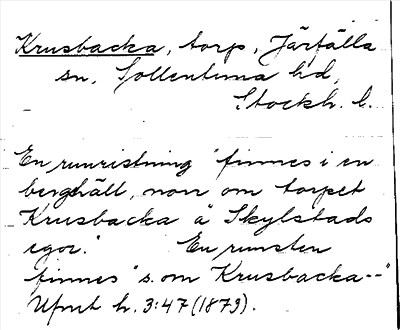 Krusbacka, torp, Järfälla
sn, Sollentuna hd,
Stockh. l.
En runristning "finnes i en
berghäll, norr om torpet
Krusbacka å Skylstads
egor." En runsten
finnes "s. om Krusbacka--"
Upnt h. 3:47 (1873).